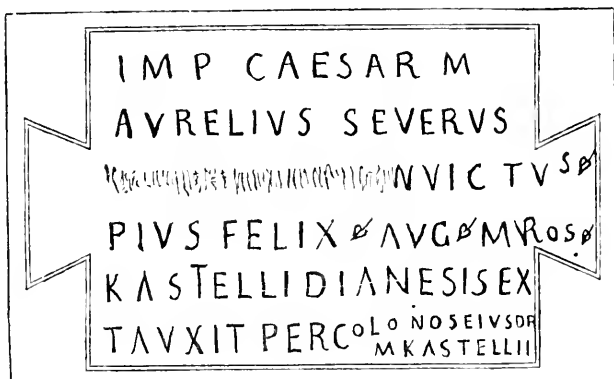 IMP CAESAR M
AVRELIVS SEVERVS
NVICTVS
PIVS FELIX AVG MVROS
KASTELLIDIANESISEX
TAVXIT PERCOLONOSEIVSDR
MKASTELLII